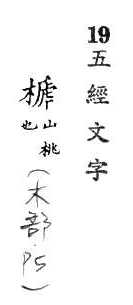 19五經文字
榹山桃也(木部.P5)